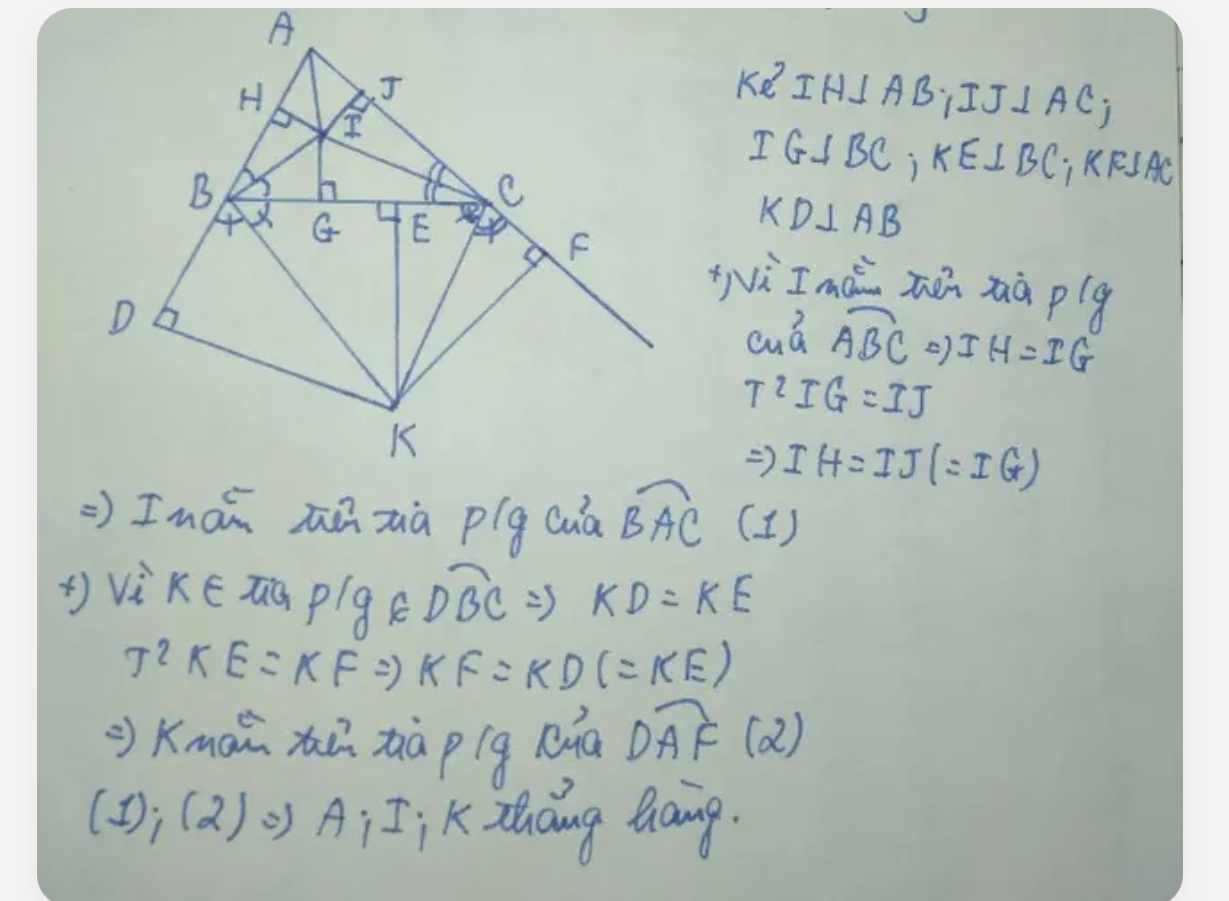 A
H
J
I
B
C
G
E
F
D
K
Kẻ IH⊥AB; IJ⊥AC;
IG⊥BC; KE⊥BC; KF⊥AC
KD⊥AB
+) Vì I nằm trên tia p/g
của ABC => IH = IG
T² IG = IJ
=> IH = IJ (= IG)
=) I nằm trên tia p/g của BAC (1)
+) Vì K ∈ tia p/g ⊄ DBC => KD = KE
T² KE = KF => KF = KD (= KE)
=) K nằm trên tia p/g của DAF (2)
(1); (2) => A; I; K thẳng hàng.